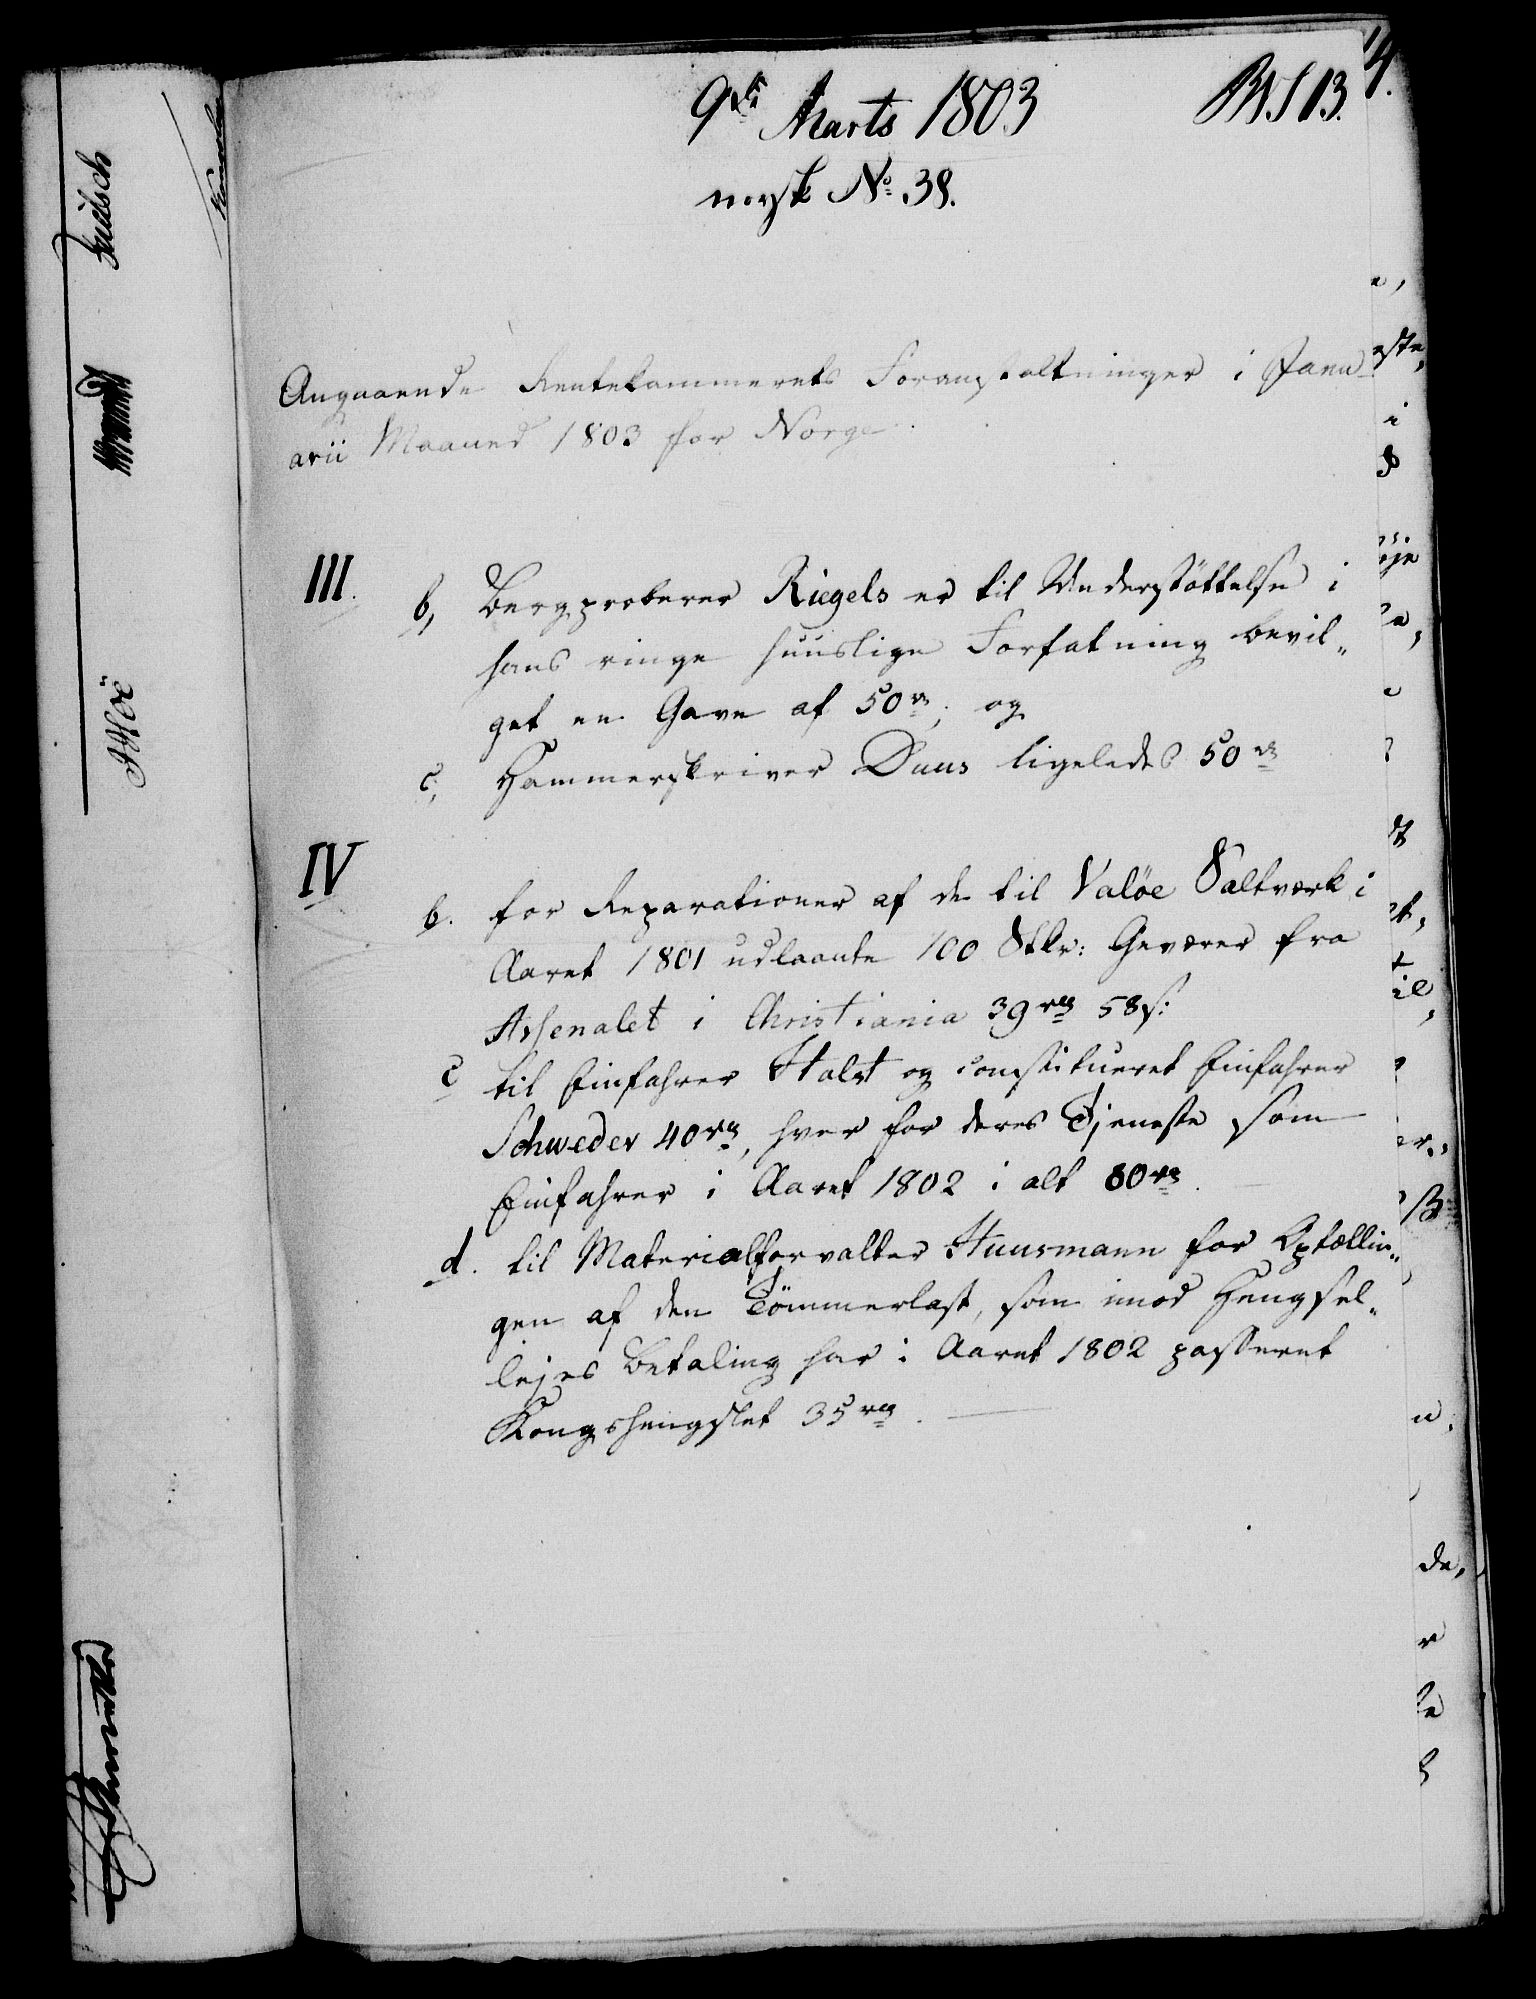 9de Marts 1803
norsk No. 38.
Angaaende Rentekammerets Foranstaltninger i Janu
arii Maaned 1803 for Norge.
III.
b, Bergproberer Riegels er til Understöttelse i
hans ringe huuslige Forfatning bevil„
get en Gave af 50 rd; og
c, Hammerskriver Duus ligeledes 50 rd
IV
b. for Reparationer af de til Valøe Saltværk i
Aaret 1801 udlaante 100 Stkr: Geværer fra
Arsenalet i Christiania 39 rd 58 s:
c til Einfahrer Stalst og constitueret Einfahrer
Schweder 40 rd, hver for deres Tjeneste som
Einfahrer i Aaret 1802 i alt 80 rd.
d. til Materialforvalter Huusmann for Optællin„
gen af den Tömmerlast, som imod Hengsel„
lejes Betaling har i Aaret 1802 passeret
Kongshengslet 35 rd.